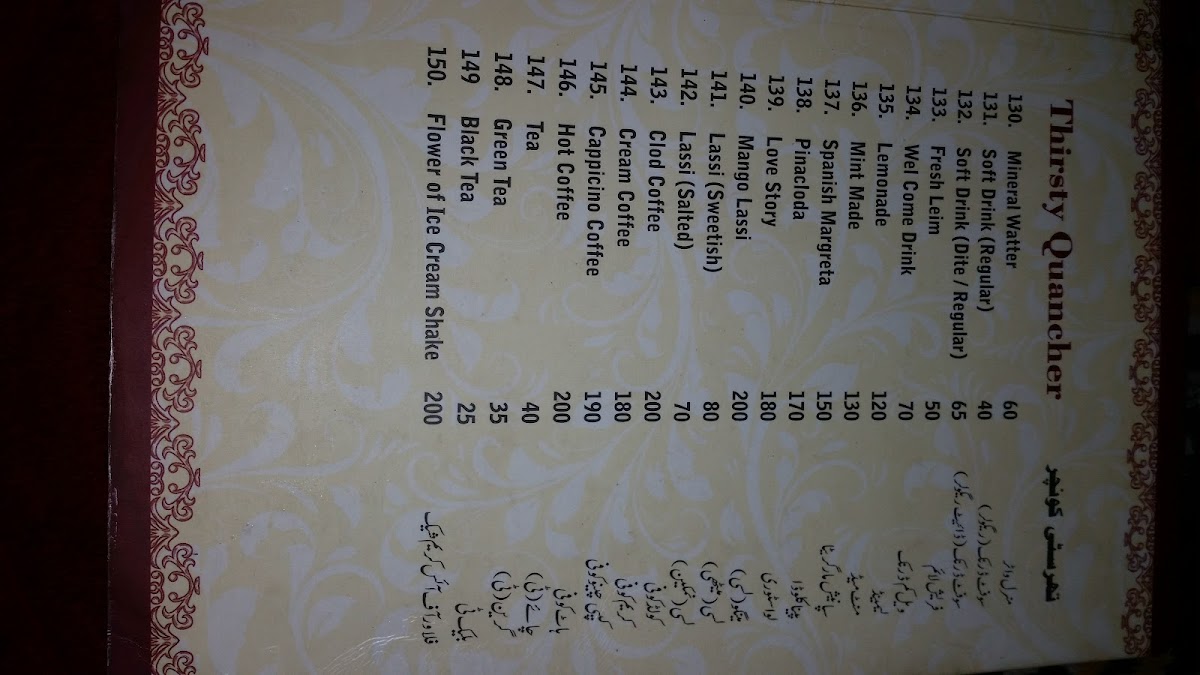 Thirsty Quancher تھرسٹی کونچر
130. Mineral Watter 60 منرل واٹر
131. Soft Drink (Regular) 40 سوفٹ ڈرنک (ریگولر)
132. Soft Drink (Dite / Regular) 65 سوفٹ ڈرنک (ڈائیٹ ریگولر)
133. Fresh Leim 50 فریش لائم
134. Wel Come Drink 70 ویل کم ڈرنک
135. Lemonade 120 لیمونیڈ
136. Mint Made 130 منٹ میڈ
137. Spanish Margreta 150 سپانش مارگریٹا
138. Pinacloda 170 پیناکلوڈا
139. Love Story 180 لو اسٹوری
140. Mango Lassi 200 مینگو (لسی)
141. Lassi (Sweetish) 80 لسی (میٹھی)
142. Lassi (Salted) 70 لسی (نمکین)
143. Clod Coffee 200 کولڈ کوفی
144. Cream Coffee 180 کریم کوفی
145. Cappicino Coffee 190 کیپی چینو کوفی
146. Hot Coffee 200 ہاٹ کوفی
147. Tea 40 چائے (ٹی)
148. Green Tea 35 گرین (ٹی)
149 Black Tea 25 بلیک ٹی
150. Flower of Ice Cream Shake 200 فلاور آف آئس کریم شیک